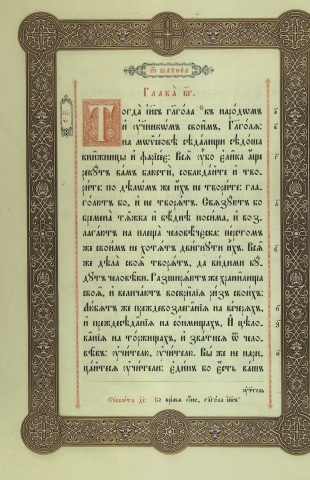 Ѿ Матѳеа
Глава к҃г.
Тогда і҃исъ гл҃гола къ народѡмъ
и ᲂу҆ченикѡмъ своимъ, глаголѧ:
на мѡѷсеовѣ сѣдалищи сѣдоша
книжницы и фарїсее: Всѧ ᲂу҆бо елика аще
рекꙋтъ вамъ блюсти, соблюдайте и тво-
рите: по дѣлѡмъ же ихъ не творите: гла-
голютъ бо, и не творѧтъ. Свѧзꙋютъ бо
бремена тѧжка и бѣднѣ носима, и воз-
лагаютъ на плеща человѣчєска: перстомъ
же своимъ не хотѧтъ двигнꙋти ихъ. Всѧ
же дѣла своѧ творѧтъ, да видими бꙋ-
дꙋтъ человѣки. Разширѧютъ же хранилища
своѧ, и величаютъ воскрилїѧ ризъ своихъ:
Любѧтъ же преждевозлеганїѧ на вечерѧхъ,
и преждесѣданїѧ на сонмищахъ, И цѣло-
ванїѧ на торжищахъ, и зватисѧ ѿ чело-
вѣкъ: ᲂу҆чителю, ᲂу҆чителю. Вы же не нари-
цайтесѧ ᲂу҆чители: единъ бо есть вашъ
ᲂу҆читель
Во времѧ ѻно, глагола і҃исъ